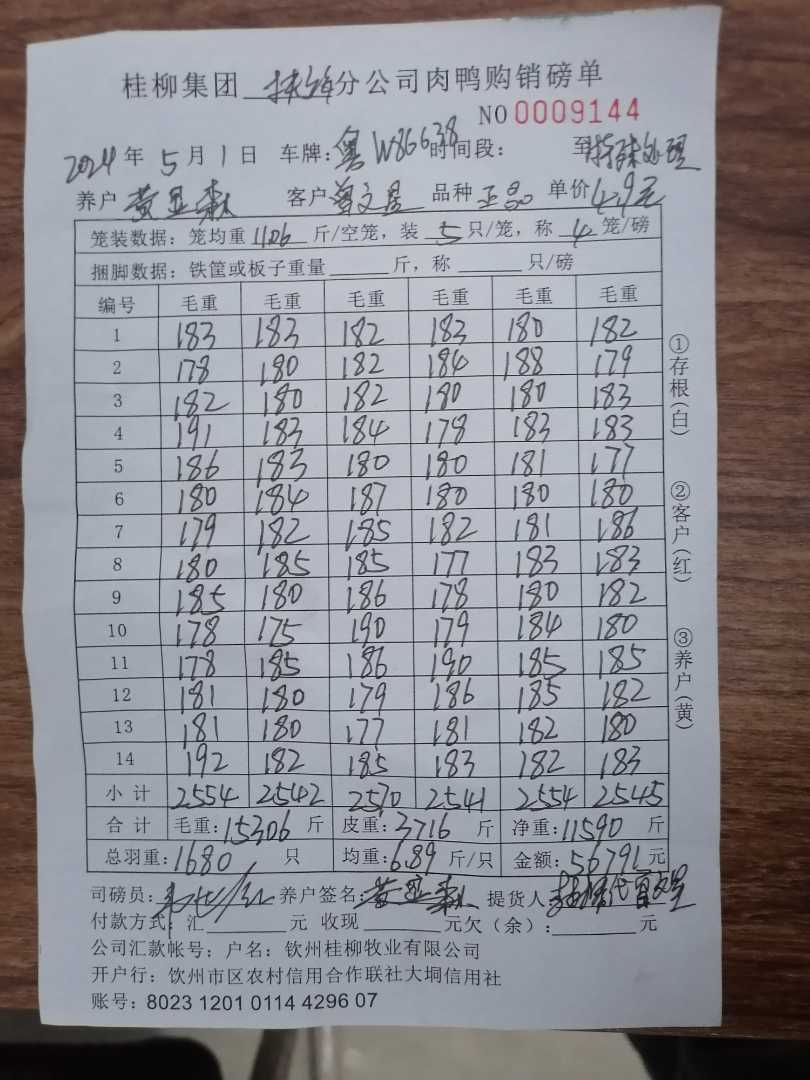 桂柳集团 分公司肉鸭购销磅单
NO 0009144
2024 年 5 月 1 日 车牌: 粤W8G638 时间段: 至 特殊处理
养户 黄显森 客户 曾文星 品种 正品 单价 4.9元
笼装数据: 笼均重 11.06 斤/空笼, 装 5 只/笼, 称 4 笼/磅
捆脚数据: 铁筐或板子重量 斤, 称 只/磅
编号 毛重 毛重 毛重 毛重 毛重 毛重
1 183 183 182 183 180 182
2 178 180 182 184 188 179
3 182 180 182 180 180 183
4 191 183 184 178 183 183
5 186 183 180 180 181 177
6 180 184 187 180 180 180
7 179 182 185 182 181 186
8 180 185 185 177 183 183
9 185 180 186 178 180 182
10 178 175 190 179 184 180
11 178 185 186 190 185 185
12 181 180 179 186 185 182
13 181 180 177 181 182 180
14 192 182 185 183 182 183
小计 2554 2542 2570 2541 2554 2545
合计 毛重: 15306 斤 皮重: 3716 斤 净重: 11590 斤
总羽重: 1680 只 均重: 6.89 斤/只 金额: 56791 元
司磅员: 养户签名: 黄显森 提货人
付款方式: 汇 元 收现 元欠(余): 元
公司汇款帐号: 户名: 钦州桂柳牧业有限公司
开户行: 饮州市区农村信用合作联社大垌信用社
账号: 8023 1201 0114 4296 07
①存根(白)
②客户(红)
③养户(黄)